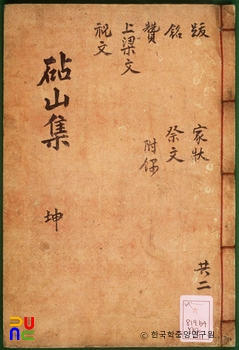 跋 家狀
銘 祭文
贊 附錄
上梁文
祝文
砧山集 坤
共二
© 한국학중앙연구원